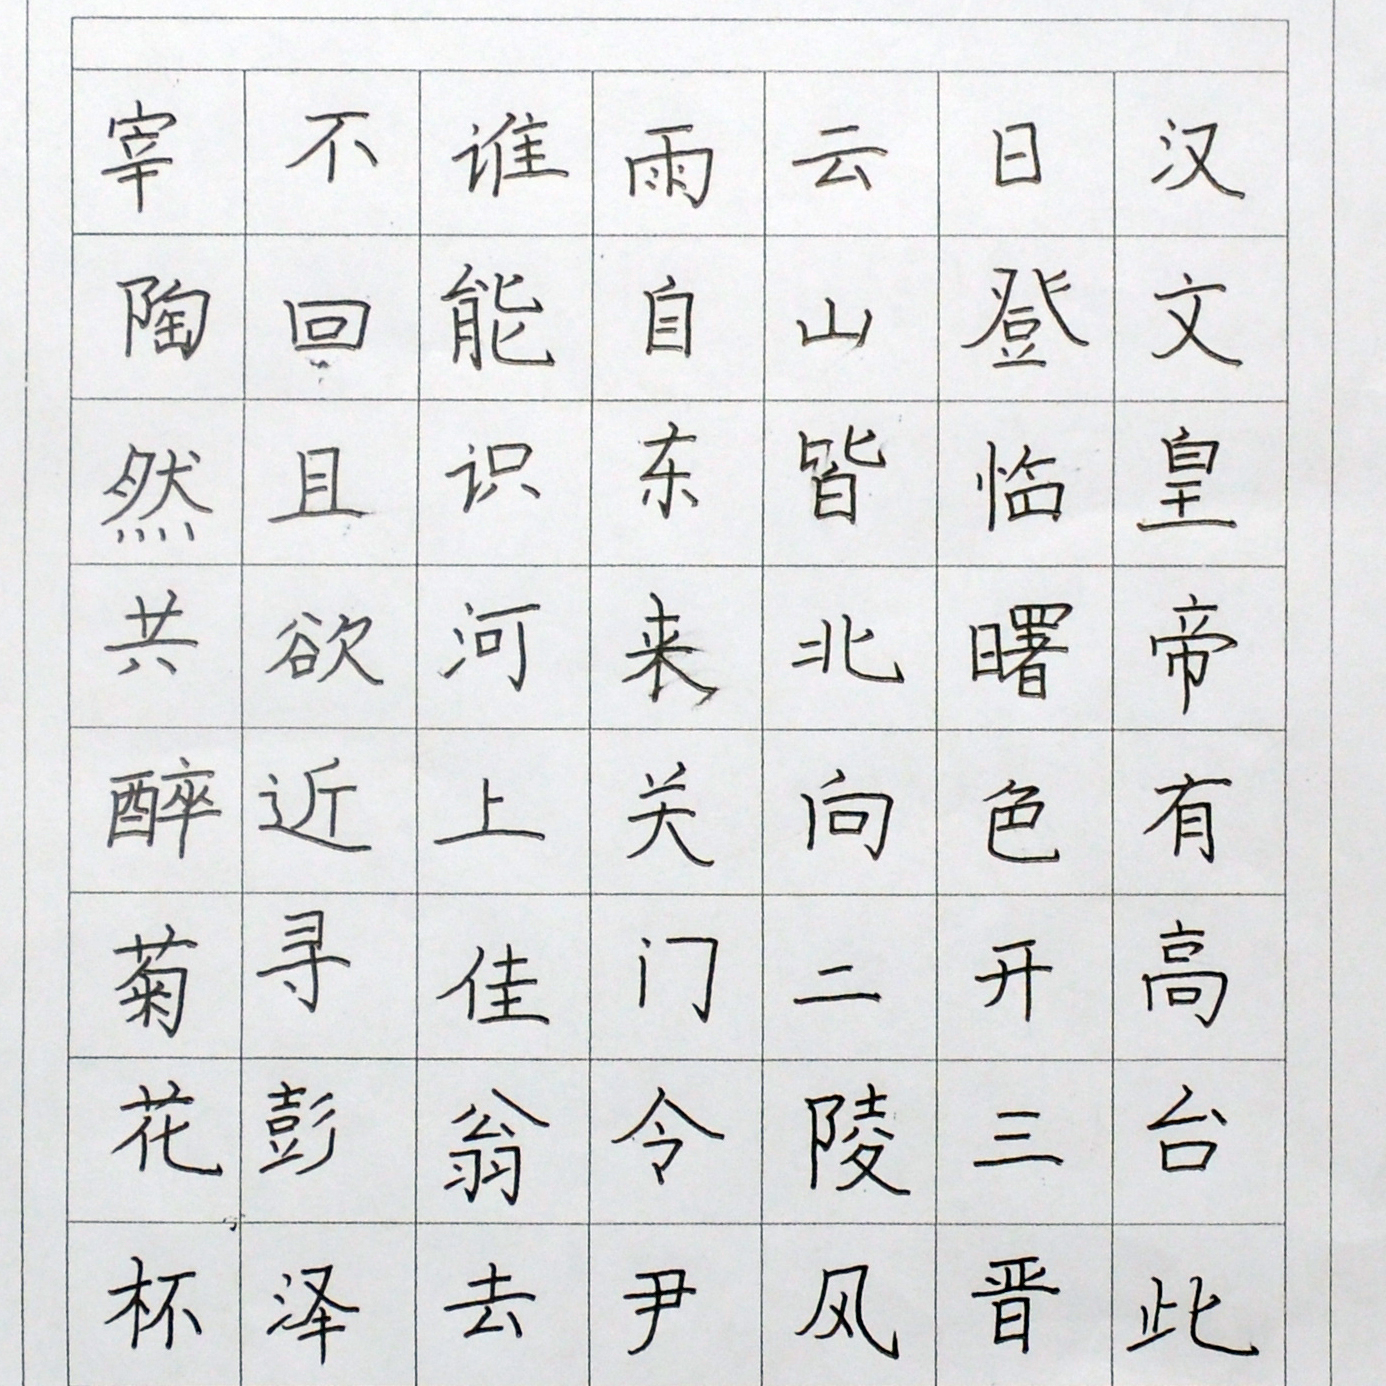 汉文皇帝有高台此
日登临曙色开三晋
云山皆北向二陵风
雨自东来关门令尹
谁能识河上佳翁去
不回且欲近寻彭泽
宰陶然共醉菊花杯